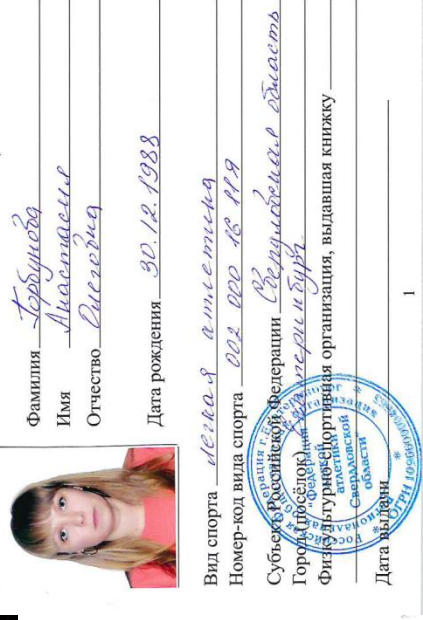 Фамилия Горбунова
Имя Анастасия
Отчество Олеговна
Дата рождения 30.12.1988
Вид спорта легкая атлетика
Номер-код вида спорта 002 000 16 11Я
Субъект Российской Федерации Свердловская область
Город (посёлок) Екатеринбург
Физкультурно-спортивная организация, выдавшая книжку
Дата выдачи
"Федерация
легкой
атлетики
Свердловской
области"
1